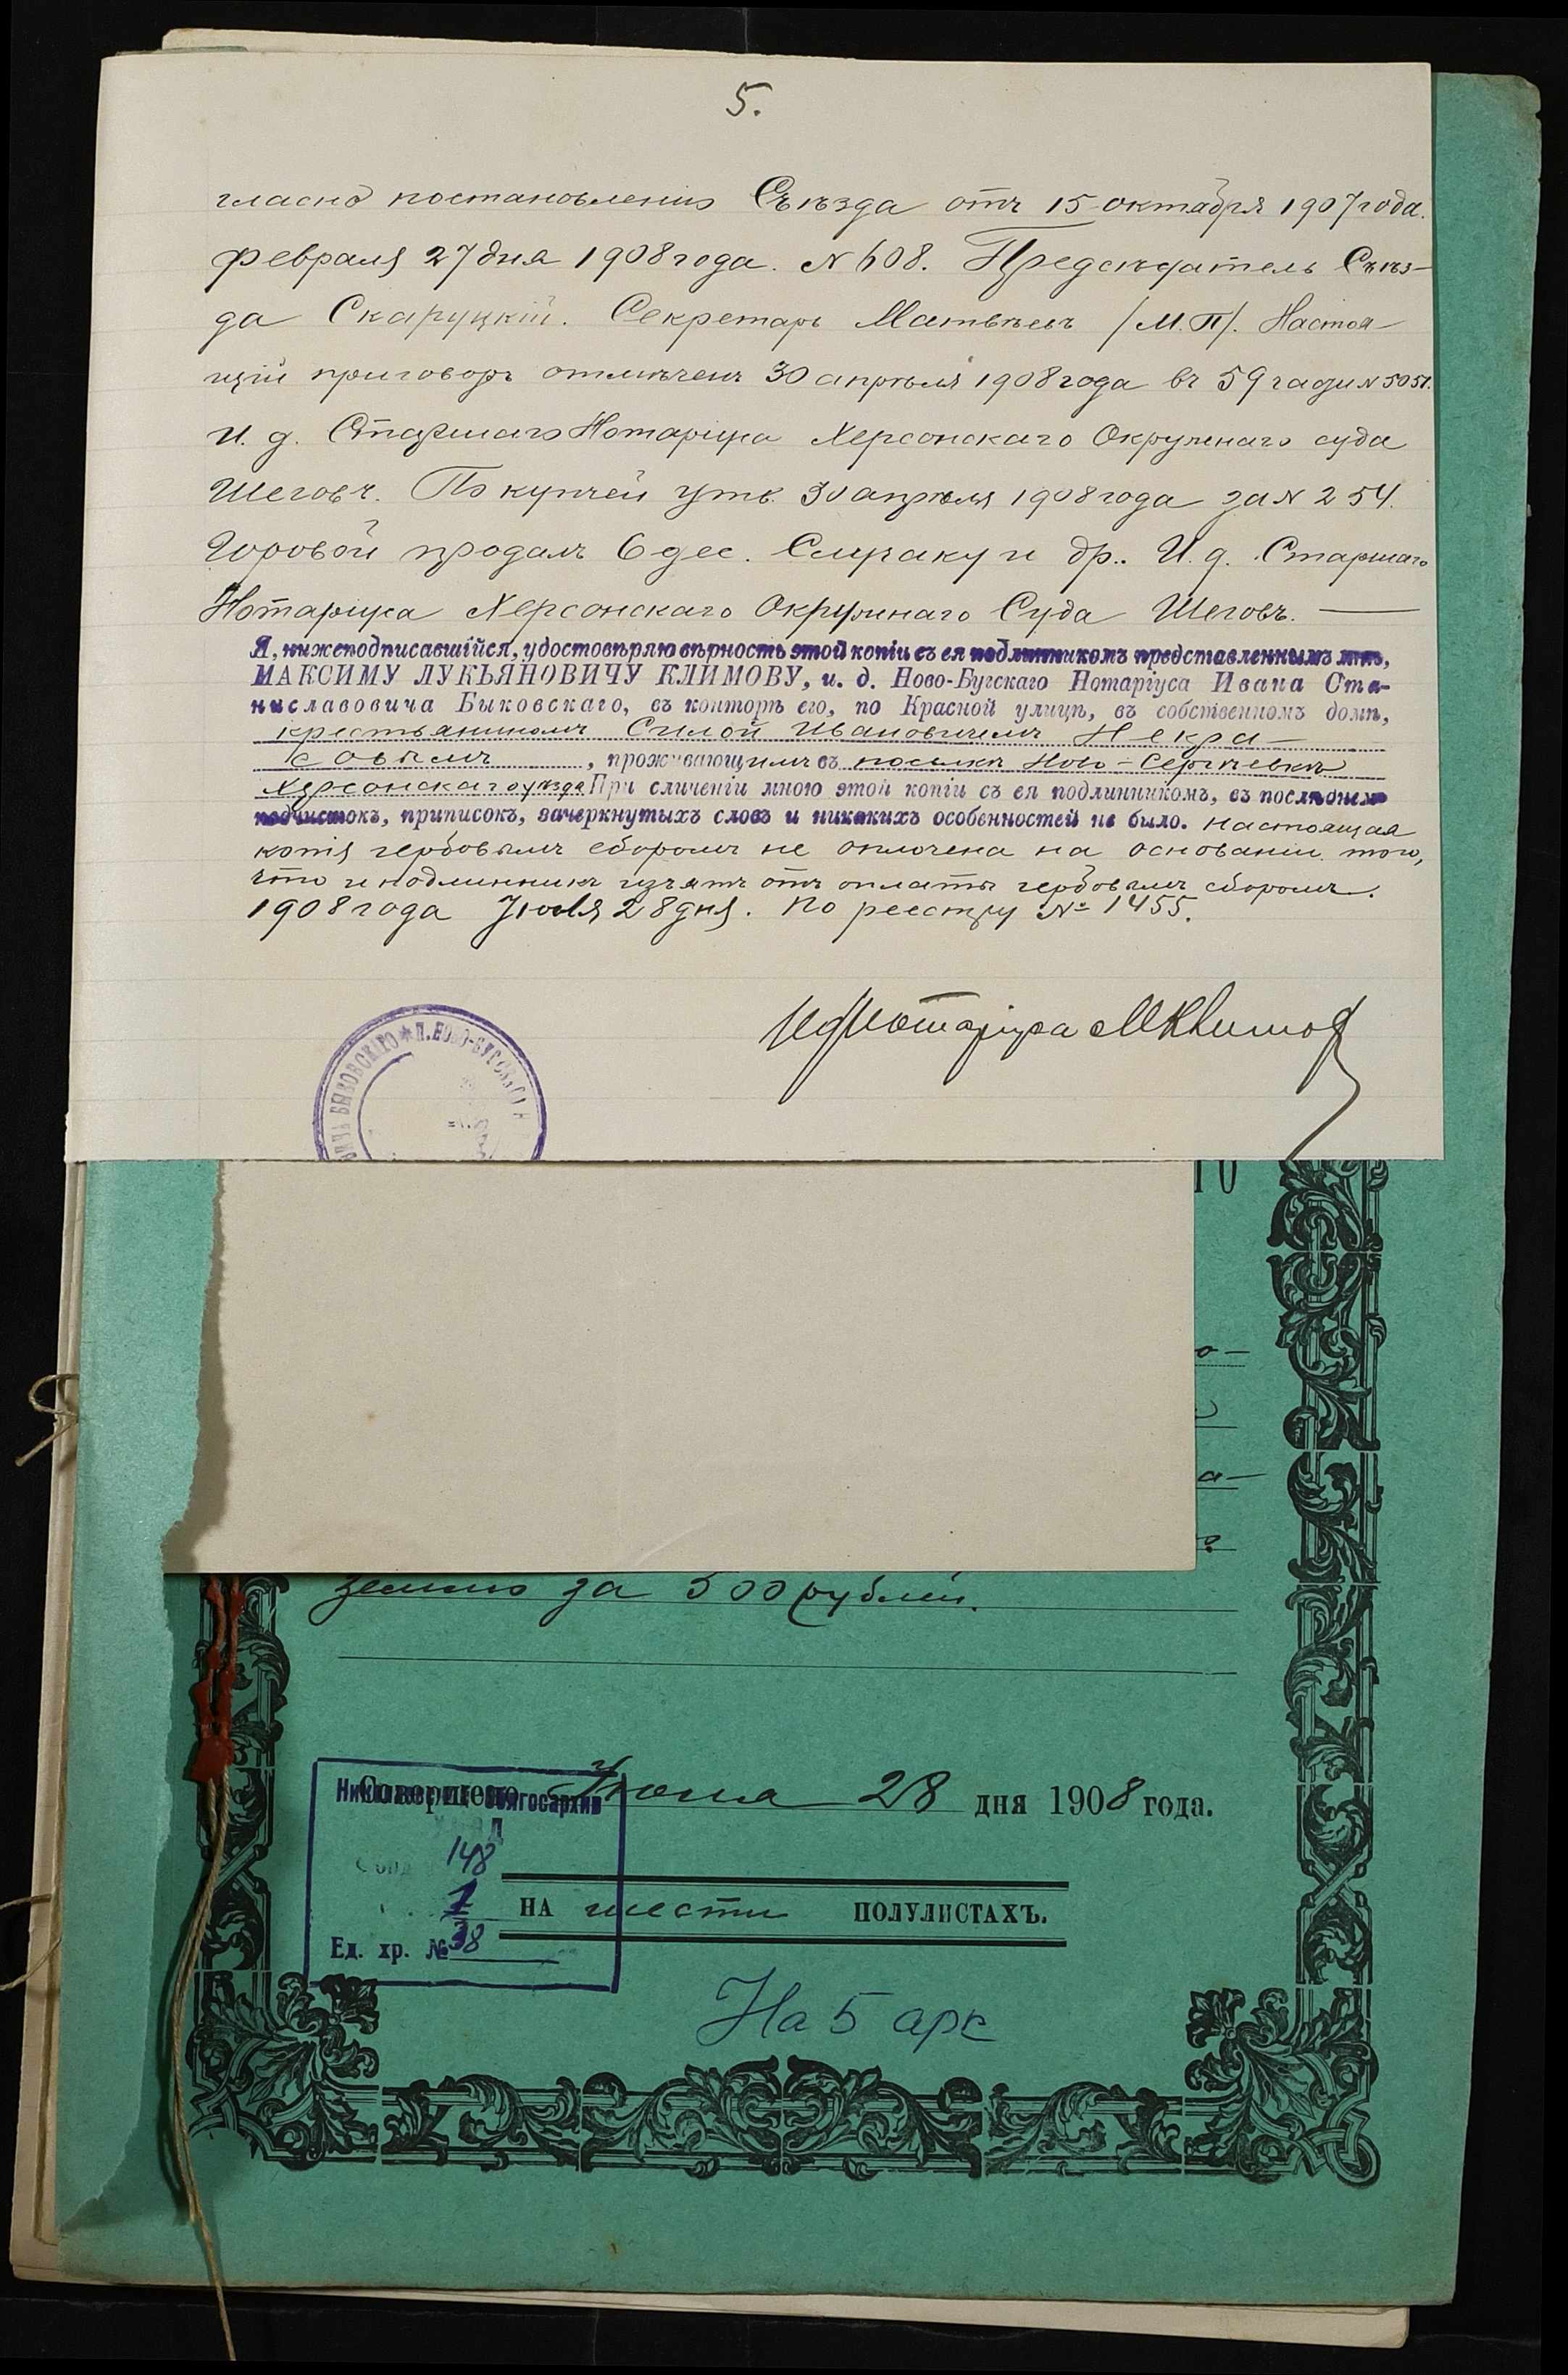 5.
гласно постановленію Съѣзда отъ 15 октября 1907 года.
февраля 27 дня 1908 года. N 608. Предсѣдатель Съѣз-
да Скаруцкій. Секретарь Матвѣевъ /М.П/. Настоя-
щій приговоръ отмѣченъ 30 апрѣля 1908 года въ 59 N 5051.
И. д. Старшаго Нотаріуса Херсонскаго Окружнаго суда
Шеговъ. По купчей утв. 30 апрѣля 1908 года за N 254.
Горовой продалъ 6 дес. и др.. И. д. Старшаго
Нотаріуса Херсонскаго Окружнаго Суда Шеговъ. —
Я, нижеподписавшійся, удостовѣряю вѣрность этой копіи съ ея подлинникомъ представленнымъ мнѣ,
МАКСИМУ ЛУКЬЯНОВИЧУ КЛИМОВУ, и. д. Ново-Бугскаго Нотаріуса Ивана Ста-
ниславовича Быковскаго, въ конторѣ его, по Красной улицѣ, въ собственномъ домѣ,
крестьяниномъ Силой Ивановичемъ Некра-
совымъ, проживающимъ въ поселкѣ Ново-Сергѣевкѣ
Херсонскаго уѣзда При сличеніи мною этой копіи съ ея подлинникомъ, въ послѣднемъ
подчистокъ, приписокъ, зачеркнутыхъ словъ и никакихъ особенностей не было. Настоящая
копія гербовымъ сборомъ не оплочена на основаніи того,
что и подлинникъ изъятъ отъ оплаты гербовымъ сборомъ.
1908 года Іюля 28 дня. По реестру № 1455.
Ид Нотаріуса МКлимовъ
БЫКОВСКАГО * П. НОВО-БУГСКАГО Н
ГО
о-
а-
землю за 500 рублей.
Совершено 28 дня 1908 года.
Николаевский Облгосархив
Фонд 148
1
НА шести ПОЛУЛИСТАХЪ.
Ед. хр. № 38
На 5 арк